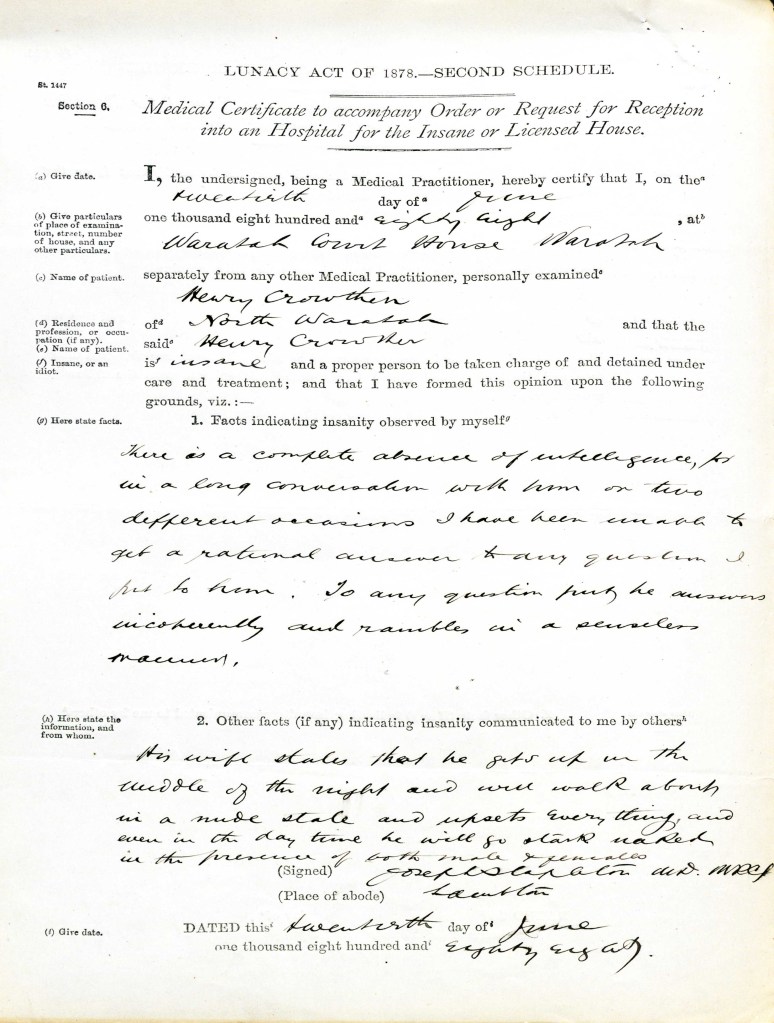 LUNACY ACT OF 1878.—SECOND SCHEDULE.
St. 1447
Section 6.
Medical Certificate to accompany Order or Request for Reception
into an Hospital for the Insane or Licensed House.
(a) Give date.
I, the undersigned, being a Medical Practitioner, hereby certify that I, on the a
twentieth day of a June
(b) Give particulars of place of examination, street, number of house, and any other particulars.
one thousand eight hundred and a eighty eight, at b
Waratah Court House Waratah
(c) Name of patient.
separately from any other Medical Practitioner, personally examined c
Henry Crowther
(d) Residence and profession, or occupation (if any).
of d North Waratah and that the
(e) Name of patient.
said e Henry Crowther
(f) Insane, or an idiot.
is f insane and a proper person to be taken charge of and detained under
care and treatment; and that I have formed this opinion upon the following
grounds, viz.:—
(g) Here state facts.
1. Facts indicating insanity observed by myself g
There is a complete absence of intelligence, for
in a long conversation with him on two
different occasions I have been unable to
get a rational answer to any question I
put to him. To any question put, he answers
incoherently and rambles in a senseless
manner.
(h) Here state the information, and from whom.
2. Other facts (if any) indicating insanity communicated to me by others h
His wife states that he gets up in the
middle of the night and will walk about
in a nude state and upsets everything, and
even in the day time he will go stark naked
in the presence of both male & females
(Signed) Joseph Stapleton M.D. MRCS
(Place of abode) Lambton
(i) Give date.
DATED this i twentieth day of i June
one thousand eight hundred and i Eighty Eight.